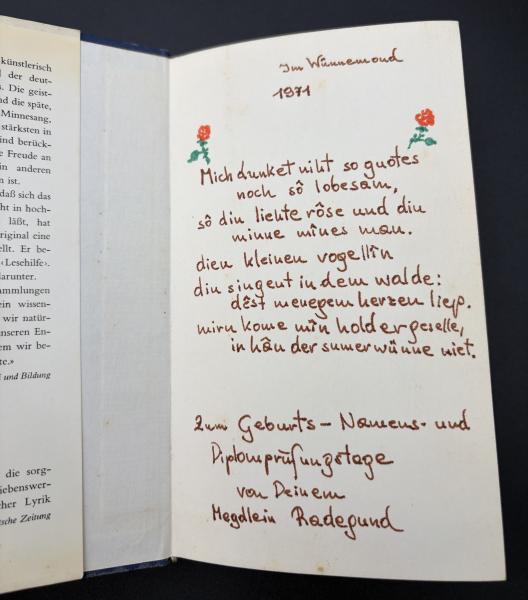 künstlerisch
d der deut-
s. Die geist-
nd die späte,
Minnesang,
stärksten in
ind berück-
e Freude an
in anderen
n ist.
daß sich das
ht in hoch-
läßt, hat
riginal eine
ellt. Er be-
‹Lesehilfe›.
darunter.
ammlungen
ein wissen-
wir natür-
unseren En-
em wir be-
te.»
l und Bildung
die sorg-
iebenswer-
cher Lyrik
sche Zeitung
Im Wünnemond
1971
Mich dunket niht so guotes
noch sô lobesam,
sô diu liehte rôse und diu
minne mînes man.
dieu kleinen vogellîn
diu singent in dem walde:
dêst menegem herzen liep.
mirn kome mîn holder geselle,
in hân der sumerwünne niet.
Zum Geburts- Namens- und
Diplomprüfungstage
von Deinem
Megdlein Radegund